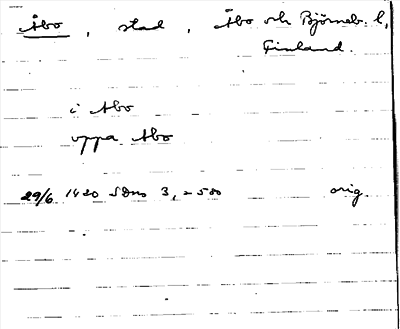 Åbo, stad, Åbo och Björneb. l,
Finland.
i Abo
vppa Abo
29/6 1420 SDns 3, s 580 orig.